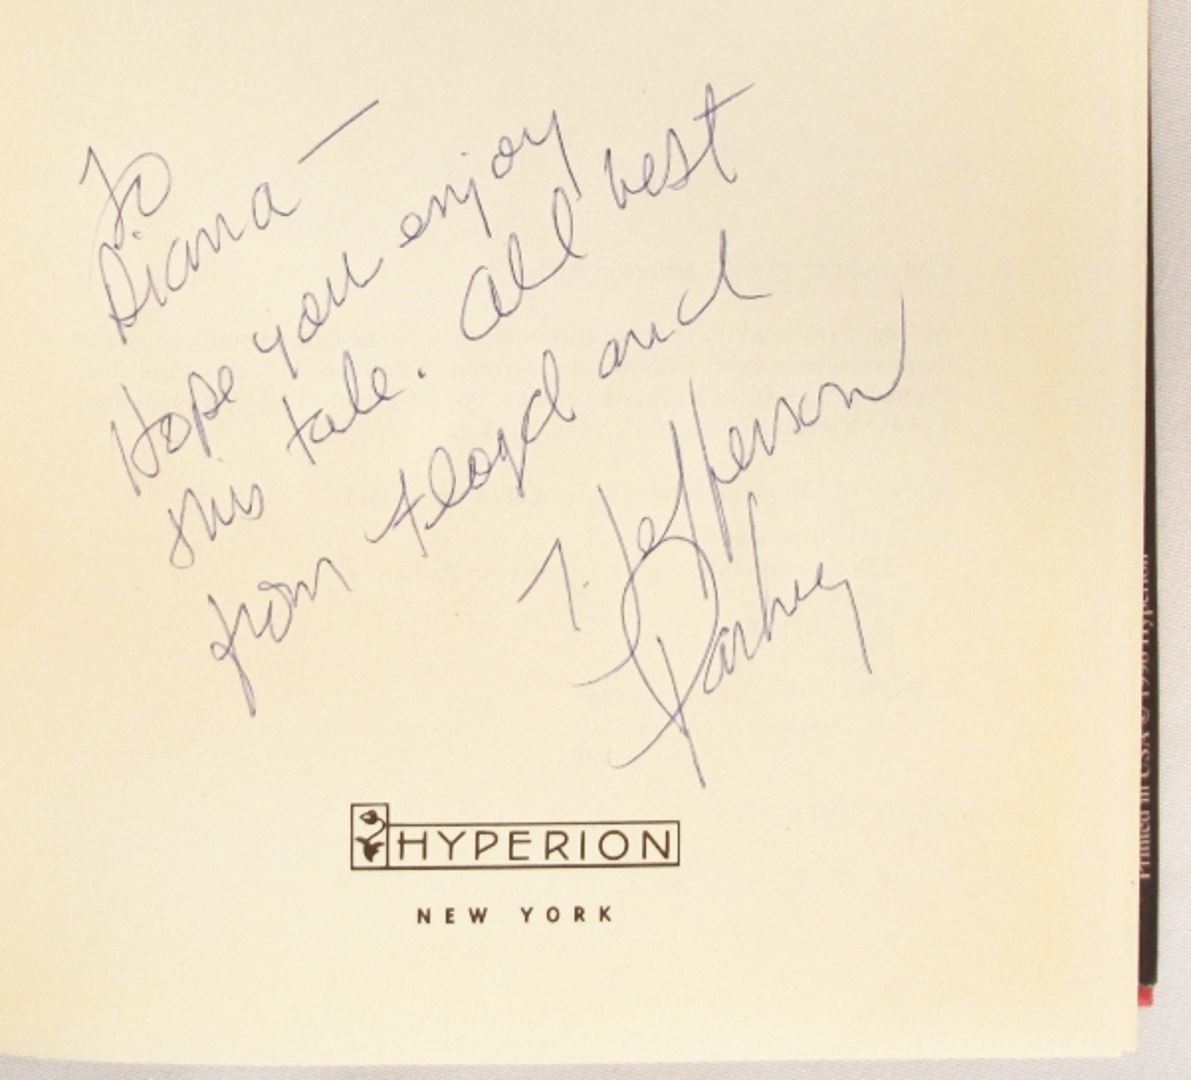 To
Diana —
Hope you enjoy
this tale. All best
from Floyd and
T. Jefferson
Parker
HYPERION
NEW YORK
Printed in USA © 1996 Hyperion